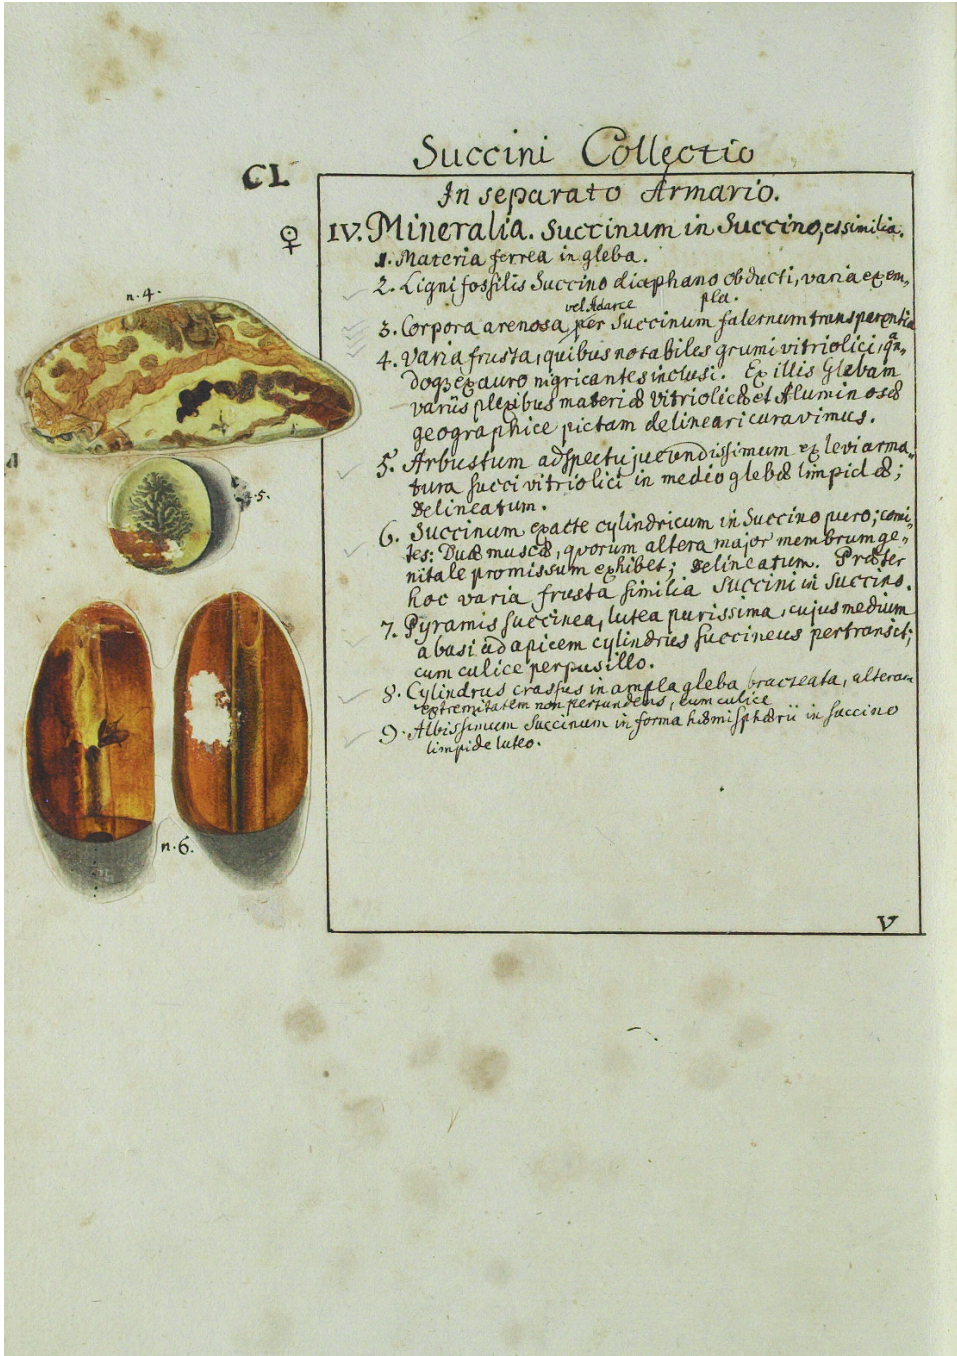 Succini Collectio
CL
In separato Armario.
♀
IV. Mineralia. Succinum in Succino, et similia.
1. Materia ferrea in gleba.
2. Ligni fossilis Succino diaphano obducti, varia exem-
pla.
vel Adarce
3. Corpora arenosa, per Succinum falernum transparentia
4. Varia frusta, quibus notabiles grumi vitriolici, qñ-
doqȝ ex auro nigricantes inclusi. Ex illis Glebam
variis plexibus materiæ vitriolicæ et Aluminosæ
geographice pictam delineari curavimus.
5. Arbustum adspectu jucundissimum ex levi arma-
tura succi vitriolici in medio glebæ limpidæ;
delineatum.
6. Succinum exacte cylindricum in Succino puro; comi-
tes: Duæ muscæ, quorum altera major membrum ge-
nitale promissum exhibet; delineatum. Præter
hoc varia frusta similia Succini in Succino.
7. Pyramis succinea, lutea purissima, cujus medium
a basi ad apicem cylindrus succineus pertransit;
cum culice perpusillo.
8. Cylindrus crassus in ampla gleba bracteata, alteram
extremitatem non pertundens, cum culice
9. Albissimum Succinum in forma hæmisphærii in succino
limpide luteo.
V
n. 4.
n. 5.
n. 6.